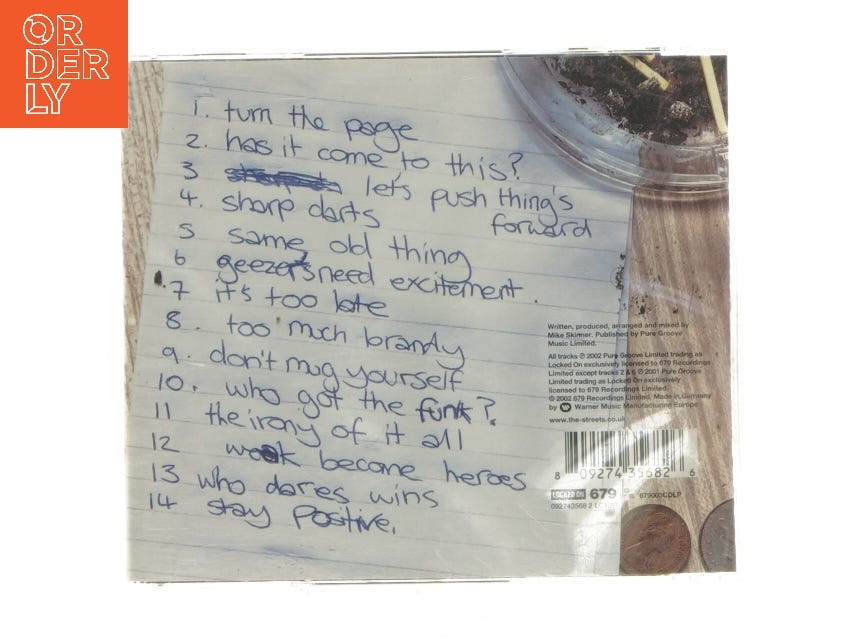 OR
DER
LY
1. turn the page
2. has it come to this?
3 let's push thing's
forward
4. sharp darts
5 same old thing
6 geezers need excitement.
7 it's too late
8. too much brandy
9. don't mug yourself
10. who got the funk?
11 the irony of it all
12 weak become heroes
13 who dares wins
14 stay positive.
Written, produced, arranged and mixed by
Mike Skinner. Published by Pure Groove
Music Limited.
All tracks ℗ 2002 Pure Groove Limited trading as
Locked On exclusively licensed to 679 Recordings
Limited except tracks 2 & 6 ℗ 2001 Pure Groove
Limited trading as Locked On exclusively
licensed to 679 Recordings Limited.
© 2002 679 Recordings Limited. Made in Germany
by Warner Music Manufacturing Europe
www.the-streets.co.uk
8 09274 35682 6
LOCKED ON 679 679003CDLP
092743568 2